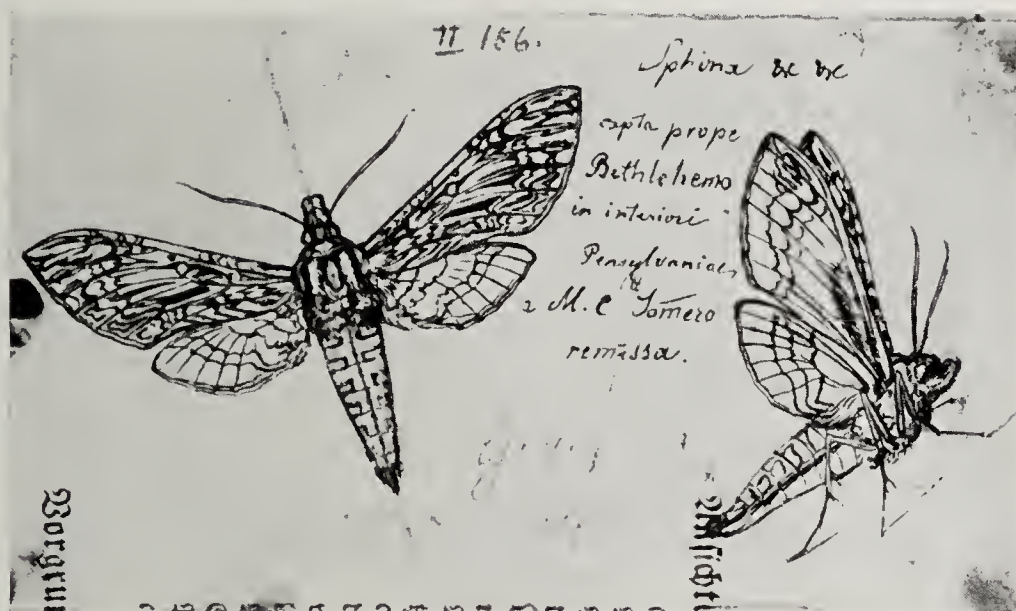 II 156.
Sphinx &c &c
capta prope
Bethlehemo
in interiori
Pensylvaniae,
a M. C Tomero
remissa.
Vorgrun
Ansicht